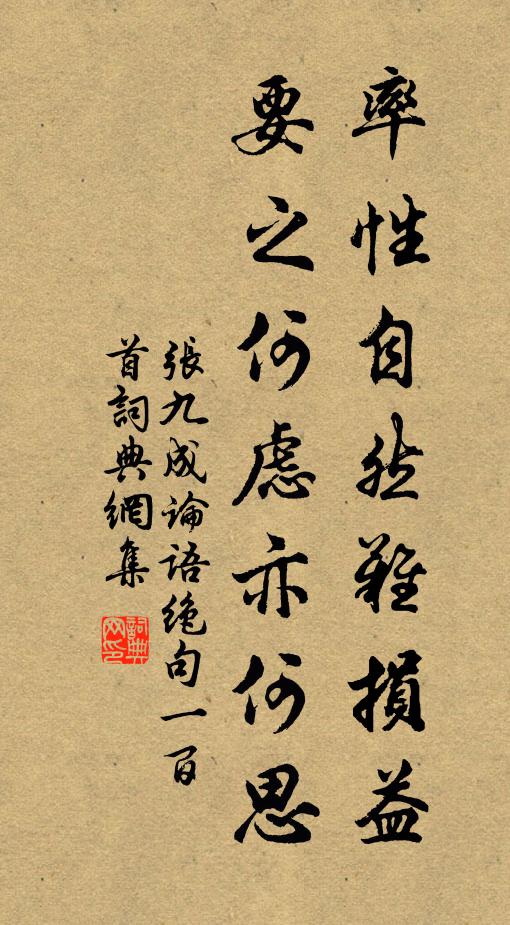 率性自然難損益
要之何慮亦何思
張九成論語絶句一百
首詞典網集
詞典
网印